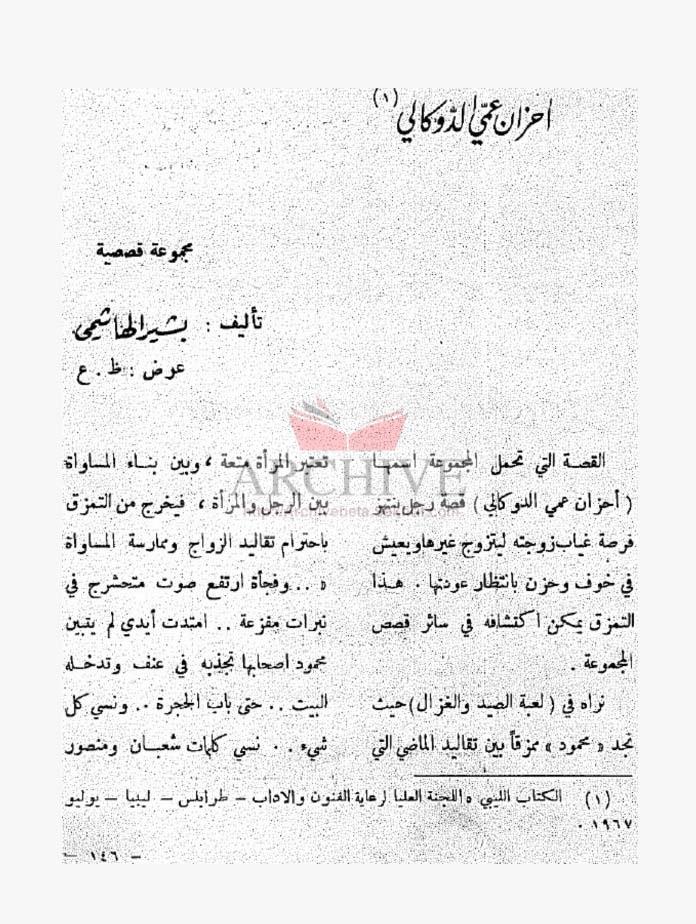 احزان عمّي الدّوكالي (١)
مجموعة قصصية
تأليف : بشير الهاشمي
عرض : ظ . ع
القصة التي تحمل المجموعة اسمها
( أحزان عمي الدوكالي ) قصة رجل ينتهز
فرصة غياب زوجته ليتزوج غيرها ويعيش
في خوف وحزن بانتظار عودتها . هذا
التمزق يمكن اكتشافه في سائر قصص
المجموعة .
نراه في ( لعبة الصيد والغزال ) حيث
نجد « محمود » ممزقاً بين تقاليد الماضي التي
تعتبر المرأة متعة ، وبين بناء المساواة
بين الرجل والمرأة ، فيخرج من التمزق
باحترام تقاليد الزواج وممارسة المساواة
« .. وفجأة ارتفع صوت متحشرج في
نبرات مفزعة .. امتدت أيدي لم يتبين
محمود اصحابها تجذبه في عنف وتدخله
البيت .. حتى باب الحجرة .. ونسي كل
شيء .. نسي كلمات شعبان ومنصور
(١) الكتاب الليبي ه اللجنة العليا لرعاية الفنون والاداب – طرابلس – ليبيا – يوليو
١٩٦٧ .
– ١٤٦ –
ARCHIVE